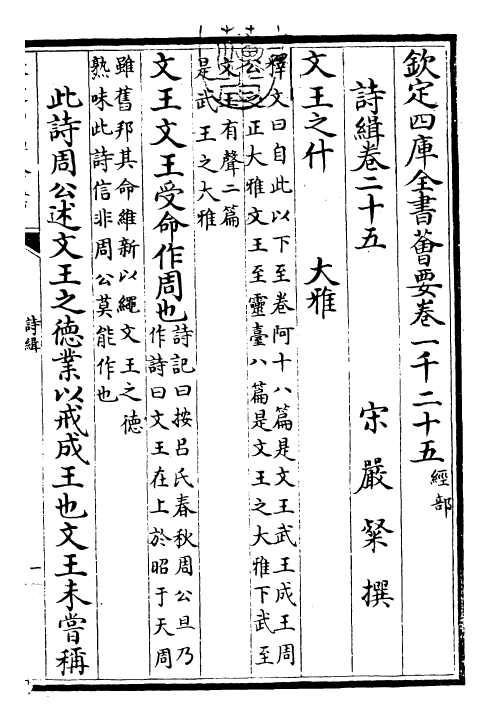 欽定四庫全書薈要卷一千二十五經部
詩緝卷二十五
宋嚴粲撰
文王之什
大雅
釋文曰自此以下至卷阿十八篇是文王武王成王周
公之正大雅文王至靈臺八篇是文王之大雅下武至
文王有聲二篇
是武王之大雅
文王文王受命作周也
詩記曰按呂氏春秋周公旦乃
作詩曰文王在上於昭于天周
雖舊邦其命維新以繩文王之德
熟味此詩信非周公莫能作也
此詩周公述文王之德業以戒成王也文王未嘗稱
詩緝
一